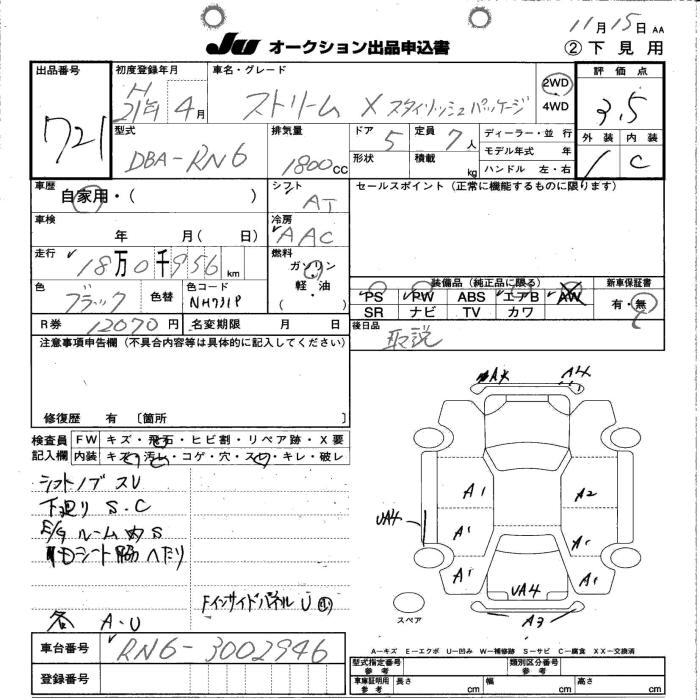 11月15日 AA
JU オークション出品申込書
② 下見用
出品番号
721
初度登録年月
H
21年 4月
車名・グレード
ストリーム X スタイリッシュパッケージ
2WD
4WD
評価点
3.5
外装 内装
1 C
型式
DBA-RN6
排気量
1800cc
ドア 5
形状
定員 7人
積載 kg
ディーラー・並行
モデル年式 年
ハンドル 左・右
車歴
自家用・( )
シフト
AT
セールスポイント(正常に機能するものに限ります)
車検
年 月( 日)
冷房
AAC
走行
18万0千956km
燃料
ガソリン
軽・油
・( )
色
ブラック
色替
色コード
NH731P
装備品(純正品に限る)
PS PW ABS エアB AW
SR ナビ TV カワ
新車保証書
有・無
R券 12070円
名変期限 月 日
後日品
取説
注意事項申告欄(不具合内容等は具体的に記入してください)
修復歴 有 [箇所 ]
検査員
記入欄
FW キズ・飛石・ヒビ割・リペア跡・X要
内装 キズ・汚レ・コゲ・穴・スレ・キレ・破レ
シフトノブ スレ
下廻り S.C
E/gルーム内 S
Fインサイドパネル U
各 A.U
A4
A1
A2
UA4
A1
A1
A1
A1
UA4
A3
スペア
車台番号
RN6-3002946
登録番号
A-キズ E-エクボ U-凹み W-補修跡 S-サビ C-腐食 XX-交換済
型式指定番号
参考
類別区分番号
参考
車庫証明用
参考
長さ cm
幅 cm
高さ cm